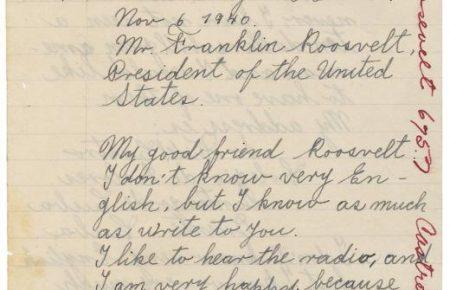 Nov 6 1940.
Mr. Franklin Roosvelt,
President of the United
States.
My good friend Roosvelt:
I don't know very En-
glish, but I know as much
as write to you.
I like to hear the radio, and
I am very happy, because